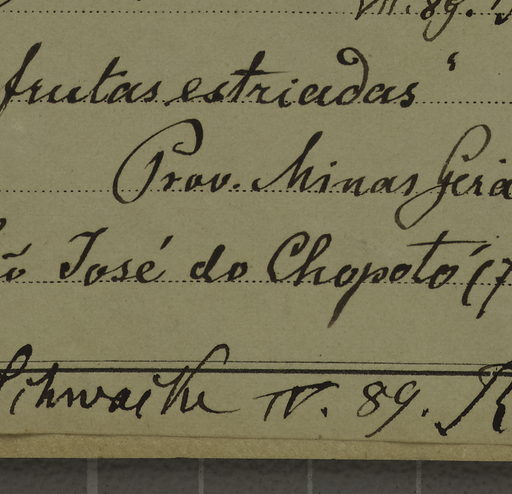 VII. 89.
frutas estriadas"
Prov. Minas Gera
São José do Chopotó (7
Schwacke IV. 89. R